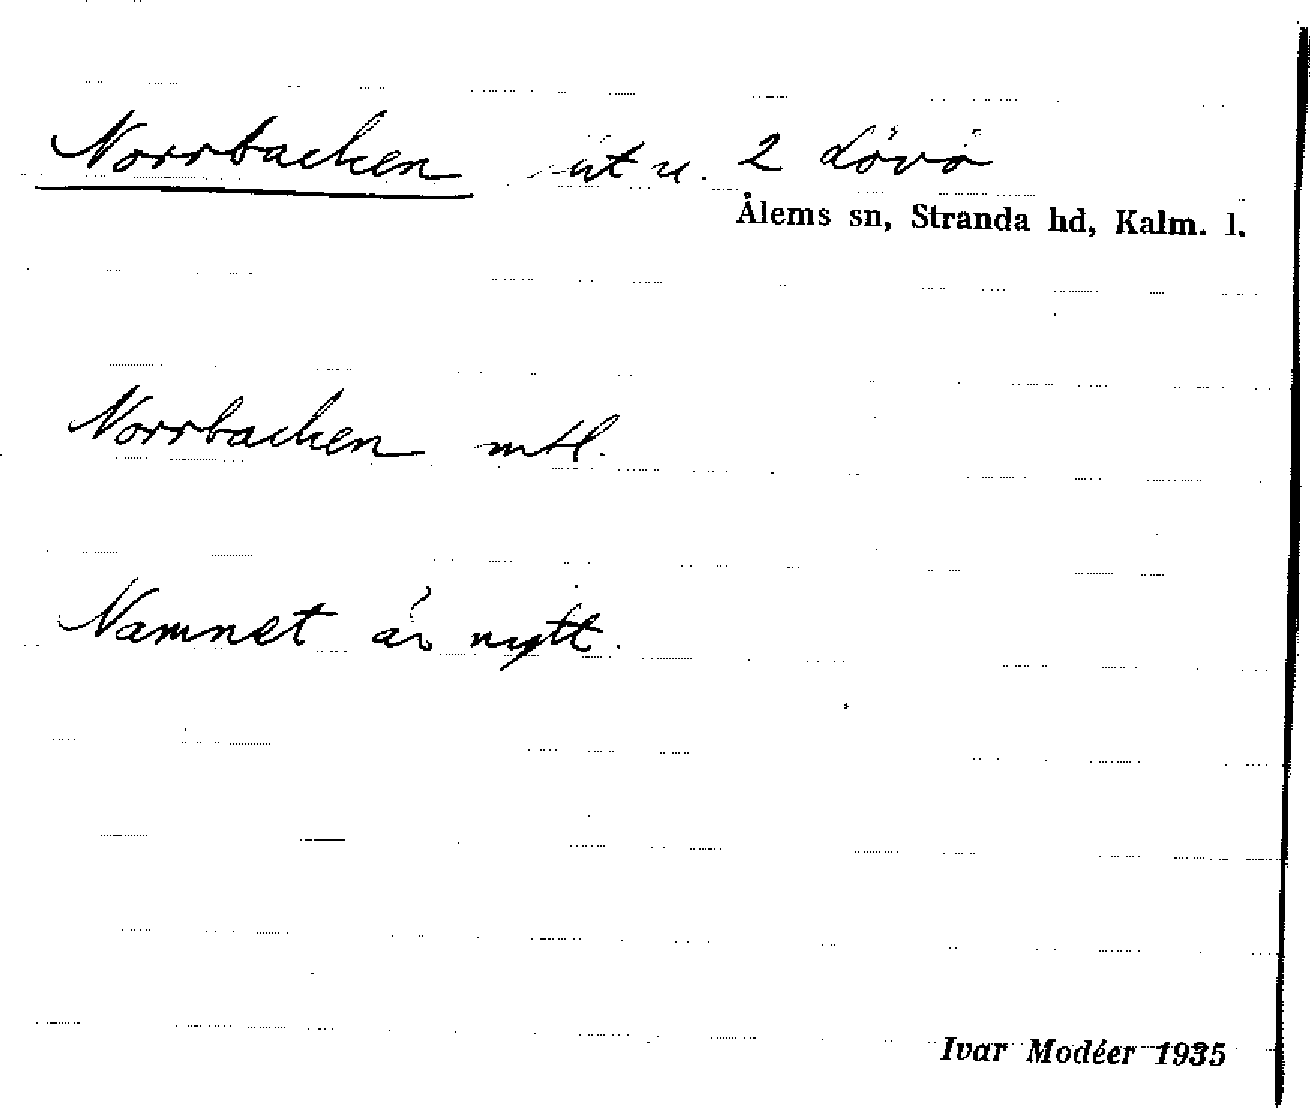 Norrbacken ut u. 2 Lövö
Ålems sn, Stranda hd, Kalm. l.
Norrbacken mtl.
Namnet är nytt.
Ivar Modéer 1935